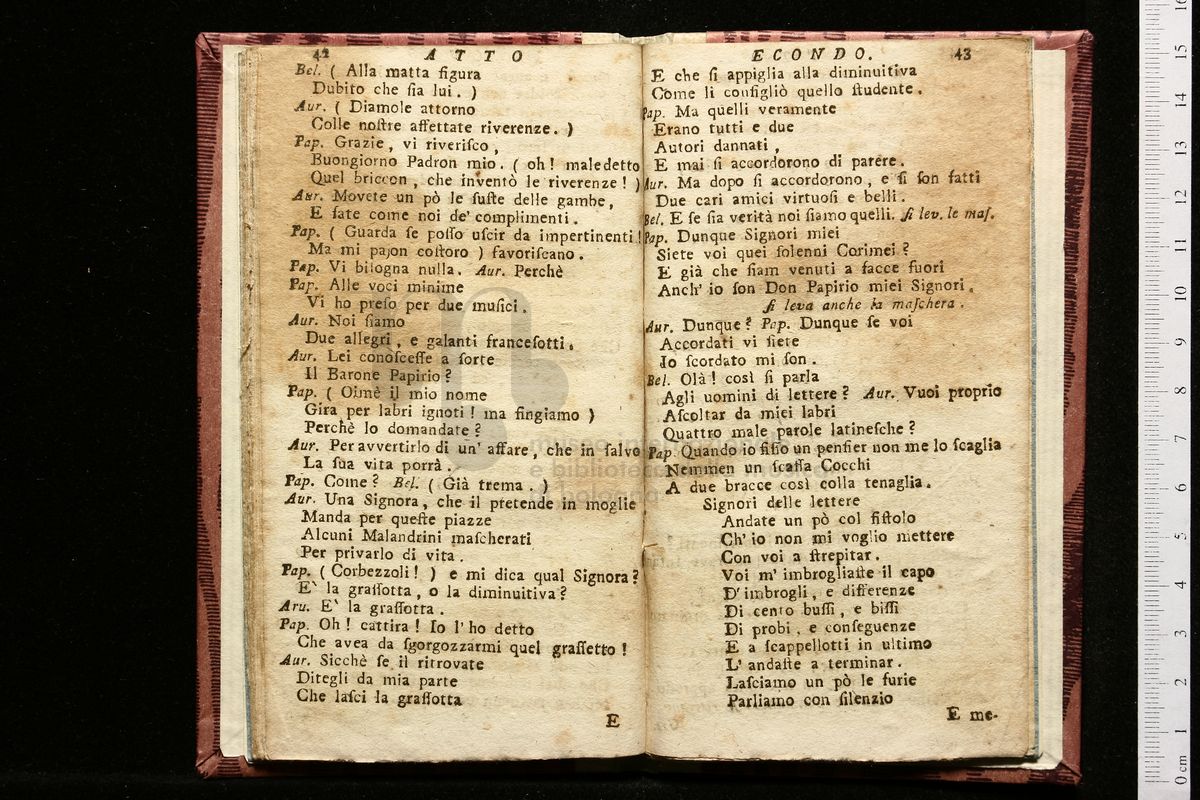 42 A T T O
Bel. ( Alla matta figura
Dubito che ſia lui. )
Aur. ( Diamole attorno
Colle noſtre affettate riverenze. )
Pap. Grazie, vi riveriſco,
Buongiorno Padron mio. ( oh! maledetto
Quel briccon, che inventò le riverenze! )
Aur. Movete un pò le ſuſte delle gambe,
E fate come noi de' complimenti.
Pap. ( Guarda ſe poſſo uſcir da impertinenti!
Ma mi pajon coſtoro ) favoriſcano.
Pap. Vi biſogna nulla. Aur. Perchè
Pap. Alle voci minime
Vi ho preſo per due muſici.
Aur. Noi ſiamo
Due allegri, e galanti franceſotti.
Aur. Lei conoſceſſe a ſorte
Il Barone Papirio?
Pap. ( Oimè il mio nome
Gira per labri ignoti! ma fingiamo )
Perchè lo domandate?
Aur. Per avvertirlo di un' affare, che in ſalvo
La ſua vita porrà.
Pap. Come? Bel. ( Già trema. )
Aur. Una Signora, che il pretende in moglie
Manda per queſte piazze
Alcuni Malandrini maſcherati
Per privarlo di vita.
Pap. ( Corbezzoli! ) e mi dica qual Signora?
E` la graſſotta, o la diminuitiva?
Aru. E` la graſſotta.
Pap. Oh! cattira! Io l' ho detto
Che avea da ſgorgozzarmi quel graſſetto!
Aur. Sicchè ſe il ritrovate
Ditegli da mia parte
Che laſci la graſſotta
E
E C O N D O. 43
E che ſi appiglia alla diminuitiva
Come li conſigliò quello ſtudente.
Pap. Ma quelli veramente
Erano tutti e due
Autori dannati,
E mai ſi accordorono di parere.
Aur. Ma dopo ſi accordorono, e ſi ſon fatti
Due cari amici virtuoſi e belli.
Bel. E ſe ſia verità noi ſiamo quelli. ſi lev. le maſ.
Pap. Dunque Signori miei
Siete voi quei ſolenni Corimei?
E già che ſiam venuti a facce fuori
Anch' io ſon Don Papirio miei Signori.
ſi leva anche la maſchera.
Aur. Dunque? Pap. Dunque ſe voi
Accordati vi ſiete
Io ſcordato mi ſon.
Bel. Olà! così ſi parla
Agli uomini di lettere? Aur. Vuoi proprio
Aſcoltar da miei labri
Quattro male parole latineſche?
Pap. Quando io fiſſo un penſier non me lo ſcaglia
Nemmen un ſcaſſa Cocchi
A due bracce così colla tenaglia.
Signori delle lettere
Andate un pò col fiſtolo
Ch' io non mi voglio mettere
Con voi a ſtrepitar.
Voi m' imbrogliaſte il capo
D' imbrogli, e differenze
Di cento buſſi, e biſſi
Di probi, e conſeguenze
E a ſcappellotti in ultimo
L' andaſte a terminar.
Laſciamo un pò le furie
Parliamo con ſilenzio
E me-